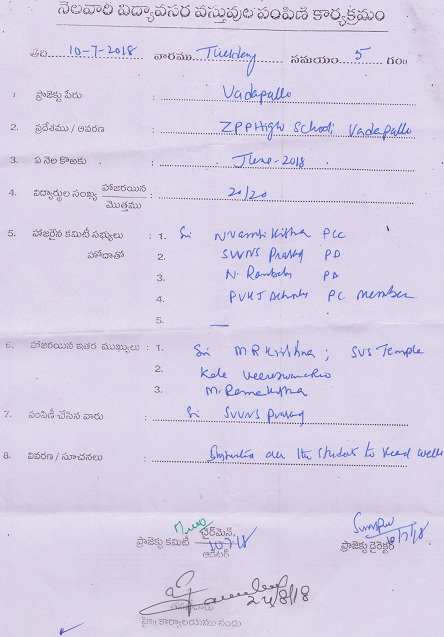 నెలవారి విద్యావసర వస్తువుల పంపిణి కార్యక్రమం
తేది 10-7-2018 వారము Tuesday సమయం 5 గం॥
1. ప్రాజెక్టు పేరు : Vadapalle
2. ప్రదేశము / ఆవరణ : ZPP High School Vadapalle
3. ఏ నెల కొఱకు : June-2018
4. విద్యార్థుల సంఖ్య హాజరయిన : 20/20
మొత్తము
5. హాజరైన కమిటీ సభ్యులు : 1. Sri N Vamsi Krishna PCC
హోదాతో 2. SVVNS Prasad PD
3. N. PD
4. PVKJ PC Member
5. —
6. హాజరయిన ఇతర ముఖ్యులు : 1. Sri M R Krishna ; SVS Temple
2. Kale Veereswara Rao
3. M. Rama Krishna
7. పంపిణీ చేసిన వారు : Sri SVVNS Prasad
8. వివరణ / సూచనలు : all the Student to Read well
ప్రాజెక్టు కమిటీ చైర్‌మెన్ 10/7/18
ఆడిటర్
ప్రాజెక్టు డైరెక్టర్ 10/7/18
24/8/18
కార్యాలయము నందు